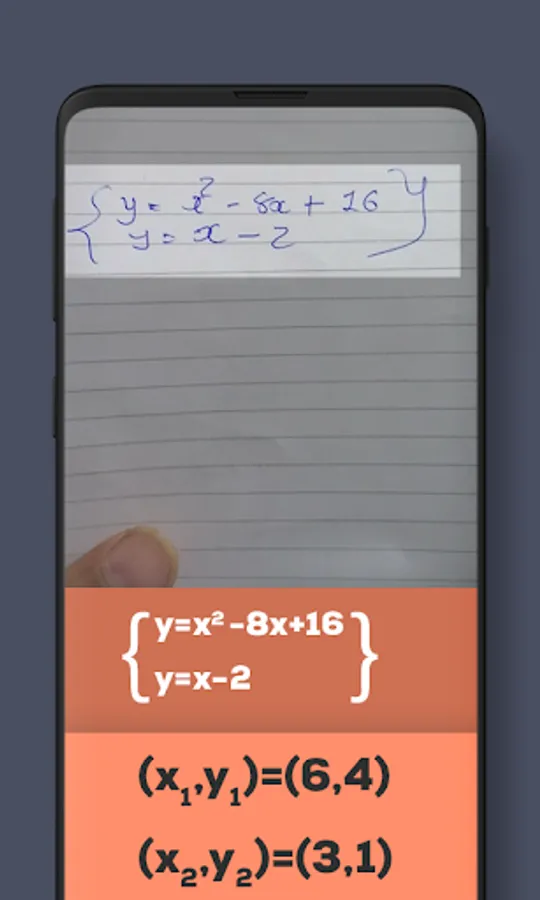 { y = x² - 8x + 16 }
y = x - 2
{ y=x²-8x+16 }
y=x-2
(x₁,y₁)=(6,4)
(x₂,y₂)=(3,1)